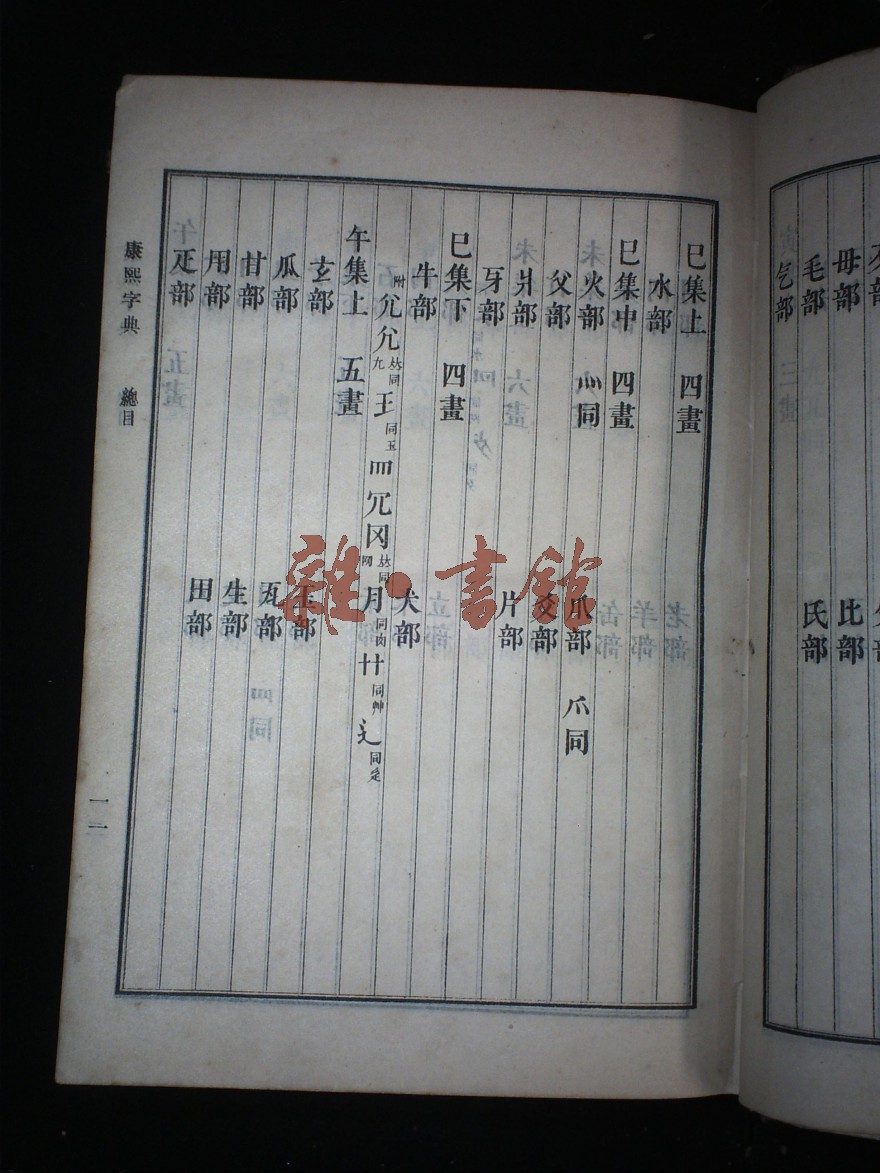 毋部 比部
毛部 氏部
气部
巳集上 四畫
水部
巳集中 四畫
火部 灬同 爪部 爫同
父部 爻部
爿部 片部
牙部
巳集下 四畫
牛部 犬部
附 𠀤同 王 同玉 罒 𠀤同网 月 同肉 艹 同艸 辶 同辵
午集上 五畫
玄部 玉部
瓜部 瓦部
甘部 生部
用部 田部
疋部
康熙字典 總目
一一
雜·書館